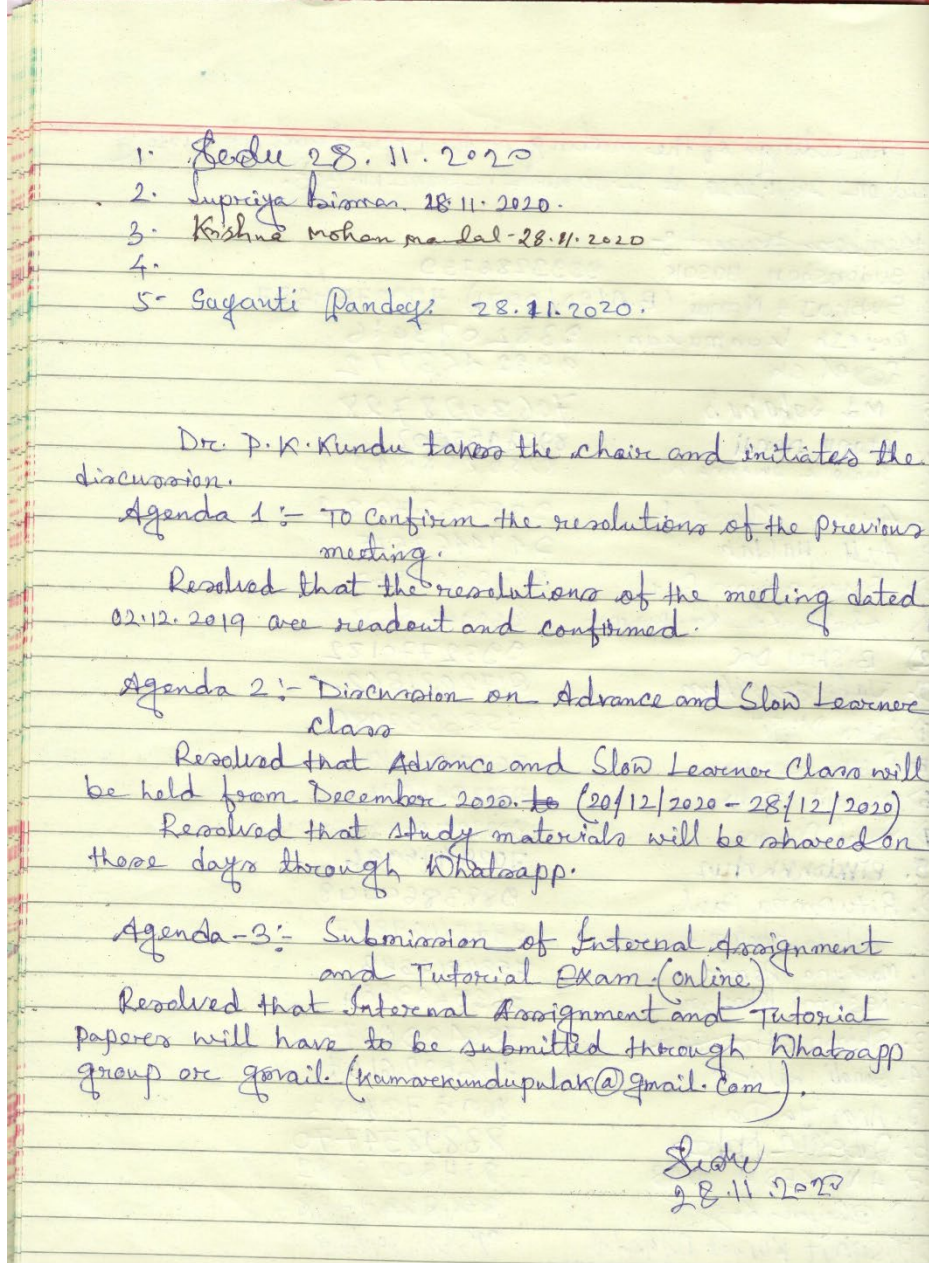 1. 28.11.2020
2. Supriya Biswas. 28.11.2020.
3. Krishna Mohan mandal-28.11.2020
4.
5- Sayanti Pandey. 28.11.2020.
Dr. P.K. Kundu takes the chair and initiates the
discussion.
Agenda 1:- To Confirm the resolutions of the previous
meeting.
Resolved that the resolutions of the meeting dated
02.12.2019 are readout and confirmed.
Agenda 2:- Discussion on Advance and Slow Learner
class
Resolved that Advance and Slow Learner Class will
be held from December 2020. to (20/12/2020 - 28/12/2020)
Resolved that study materials will be shared on
those days through Whatsapp.
Agenda-3:- Submission of Internal Assignment
and Tutorial Exam. (online)
Resolved that Internal Assignment and Tutorial
papers will have to be submitted through Whatsapp
group or gmail. (kumarkundupulak@gmail.com).
28.11.2020